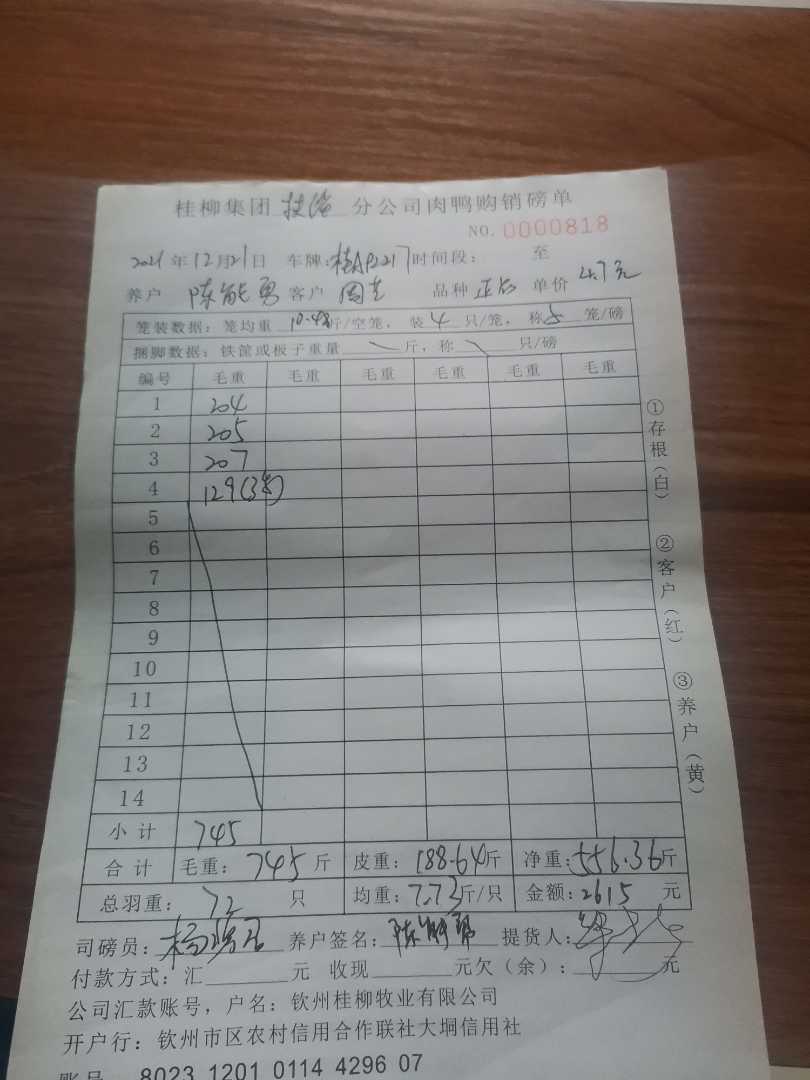 桂柳集团 分公司肉鸭购销磅单
NO. 0000818
2021 年 12 月 21 日 车牌: 时间段: 至
养户 陈能勇 客户 品种 单价 4.7元
笼装数据: 笼均重 10.48 斤/空笼, 装 4 只/笼, 称 5 笼/磅
捆脚数据: 铁筐或板子重量 斤, 称 只/磅
编号 毛重 毛重 毛重 毛重 毛重 毛重
1 204
2 205
3 207
4 129(3笼)
5
6
7
8
9
10
11
12
13
14
小计 745
合计 毛重: 745 斤 皮重: 188.64 斤 净重: 556.36 斤
总羽重: 72 只 均重: 7.73 斤/只 金额: 2615 元
司磅员: 养户签名: 陈能勇 提货人:
付款方式: 汇 元 收现 元欠(余): 元
公司汇款账号, 户名: 钦州桂柳牧业有限公司
开户行: 钦州市区农村信用合作联社大垌信用社
账号 8023 1201 0114 4296 07
①存根(白)
②客户(红)
③养户(黄)